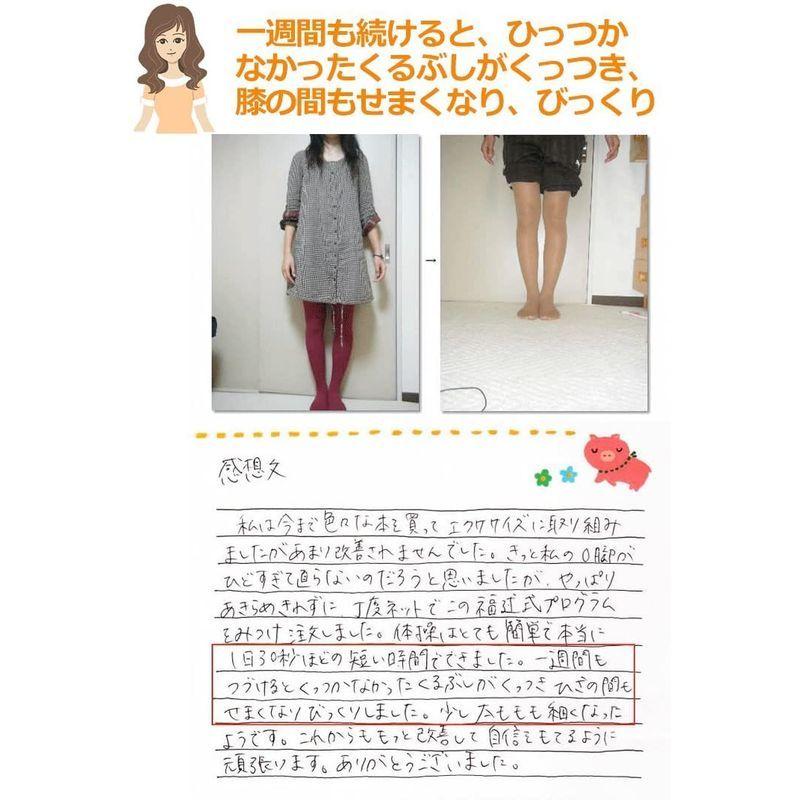 一週間も続けると、ひっつか
なかったくるぶしがくっつき、
膝の間もせまくなり、びっくり
→
感想文
私は今まで色々な本を買ってエクササイズに取り組み
ましたがあまり改善されませんでした。きっと私のO脚が
ひどすぎて直らないのだろうと思いましたが、やっぱり
あきらめきれずに丁度ネットでこの福辻式プログラム
をみつけ注文しました。体操はとても簡単で本当に
1日30秒ほどの短い時間でできました。一週間も
つづけるとくっつかなかったくるぶしがくっつきひざの間も
せまくなりびっくりしました。少し太ももも細くなった
ようです。これからももっと改善して自信をもてるように
頑張ります。ありがとうございました。